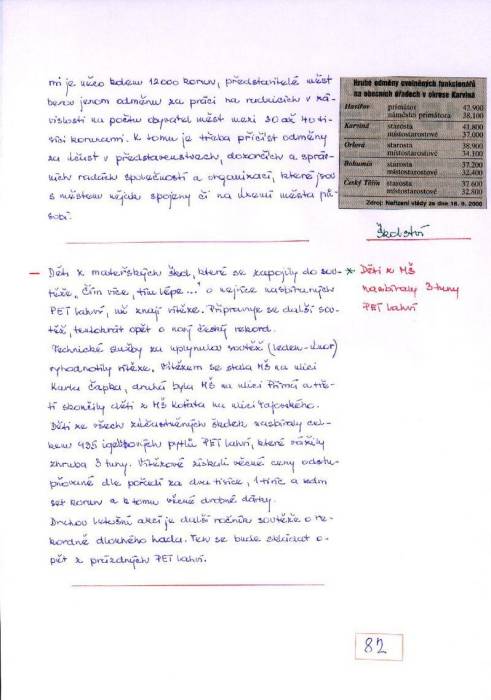 mi je něco kolem 12000 korun, představitelé měst
berou jenom odměnu za práci na radnicích v zá-
vislosti na počtu obyvatel měst mezi 30 až 40 ti-
síci korunami. K tomu je třeba přičíst odměny
za účast v představenstvech, dozorčích a správ-
ních radách společností a organizací, které jsou
s městem nějak spojeny či na území města pů-
sobí.
Hrubé odměny uvolněných funkcionářů
na obecních úřadech v okrese Karviná
Havířov primátor 42.900
náměstci primátora 38.100
Karviná starosta 41.800
místostarostové 37.000
Orlová starosta 38.900
místostarostové 34.100
Bohumín starosta 37.200
místostarostové 32.400
Český Těšín starosta 37.600
místostarostové 32.800
Zdroj: Nařízení vlády ze dne 18. 9. 2000
Školství
Děti z mateřských škol, které se zapojily do sou-
těže „Čím více, tím lépe..." o nejvíce nasbíraných
PET lahví, už znají vítěze. Připravuje se další sou-
těž, tentokrát opět o nový český rekord.
Technické služby za uplynulou soutěž (leden-únor)
vyhodnotily vítěze. Vítězem se stala MŠ na ulici
Karla Čapka, druhá byla MŠ na ulici Přímá a tře-
tí skončily děti z MŠ Koťata na ulici Tajovského.
Děti ze všech zúčastněných školek nasbíraly cel-
kem 495 igelitových pytlů PET lahví, které vážily
zhruba 3 tuny. Vítězové získali věcné ceny odstu-
pňované dle pořadí za dva tisíce, 1 tisíc a sedm
set korun a k tomu věcné drobné dárky.
Druhou letošní akcí je další ročník soutěže o re-
kordně dlouhého hada. Ten se bude skládat o-
pět z prázdných PET lahví.
* Děti z MŠ
nasbíraly 3 tuny
PET lahví
82